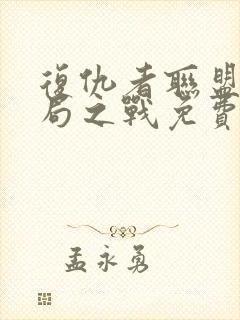 復仇者聯盟
局之戰免費
孟永勇